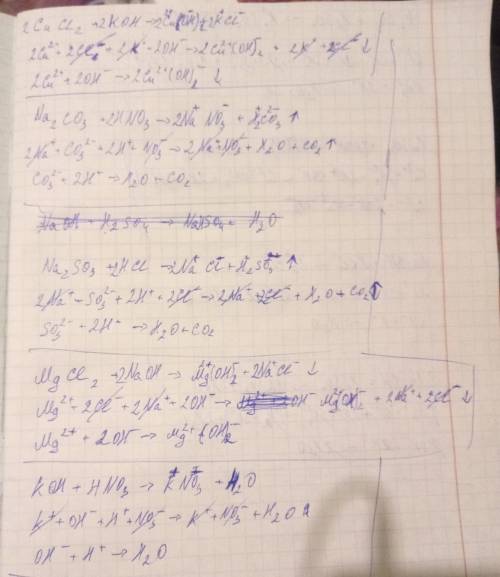 2CuCl₂ + 2KOH → 2Cu(OH) + 2KCl
2Cu²⁺ + 2Cl⁻ + 2K⁺ + 2OH⁻ → 2Cu²⁺(OH)₂⁻ + 2K⁺ + 2Cl⁻ ↓
2Cu²⁺ + 2OH⁻ → 2Cu²⁺(OH)₂⁻ ↓
Na₂CO₃ + 2HNO₃ → 2Na⁺NO₃⁻ + H₂⁺CO₃²⁻ ↑
2Na⁺ + CO₃²⁻ + 2H⁺ + NO₃⁻ → 2Na⁺ + NO₃⁻ + H₂O + CO₂ ↑
CO₃²⁻ + 2H⁺ → H₂O + CO₂
NaOH + H₂SO₄ → NaHSO₄ + H₂O
Na₂SO₃ + 2HCl → 2Na⁺Cl⁻ + H₂⁺SO₃²⁻ ↑
2Na⁺ + SO₃²⁻ + 2H⁺ + 2Cl⁻ → 2Na⁺ + 2Cl⁻ + H₂O + CO₂ ↑
SO₃²⁻ + 2H⁺ → H₂O + CO₂
MgCl₂ + 2NaOH → Mg²⁺(OH)₂⁻ + 2Na⁺Cl⁻ ↓
Mg²⁺ + 2Cl⁻ + 2Na⁺ + 2OH⁻ → Mg²⁺(OH)₂⁻ + 2Na⁺ + 2Cl⁻ ↓
Mg²⁺ + 2OH⁻ → Mg²⁺(OH)₂⁻
KOH + HNO₃ → K⁺NO₃⁻ + H₂O
K⁺ + OH⁻ + H⁺ + NO₃⁻ → K⁺ + NO₃⁻ + H₂O
OH⁻ + H⁺ → H₂O